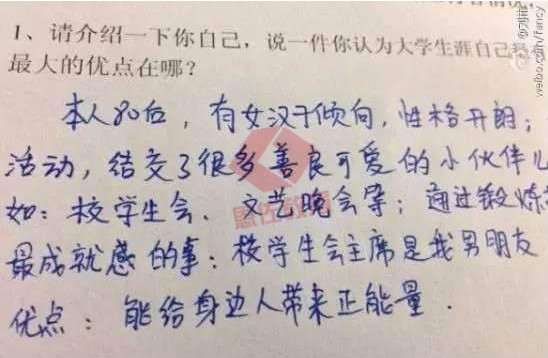 1、请介绍一下你自己，说一件你认为大学生涯自己最有
最大的优点在哪？
本人80后，有女汉子倾向，性格开朗；
活动，结交了很多善良可爱的小伙伴儿
如：校学生会、文艺晚会等；通过锻炼
最成就感的事：校学生会主席是我男朋友
优点：能给身边人带来正能量．
weibo.com/fancy